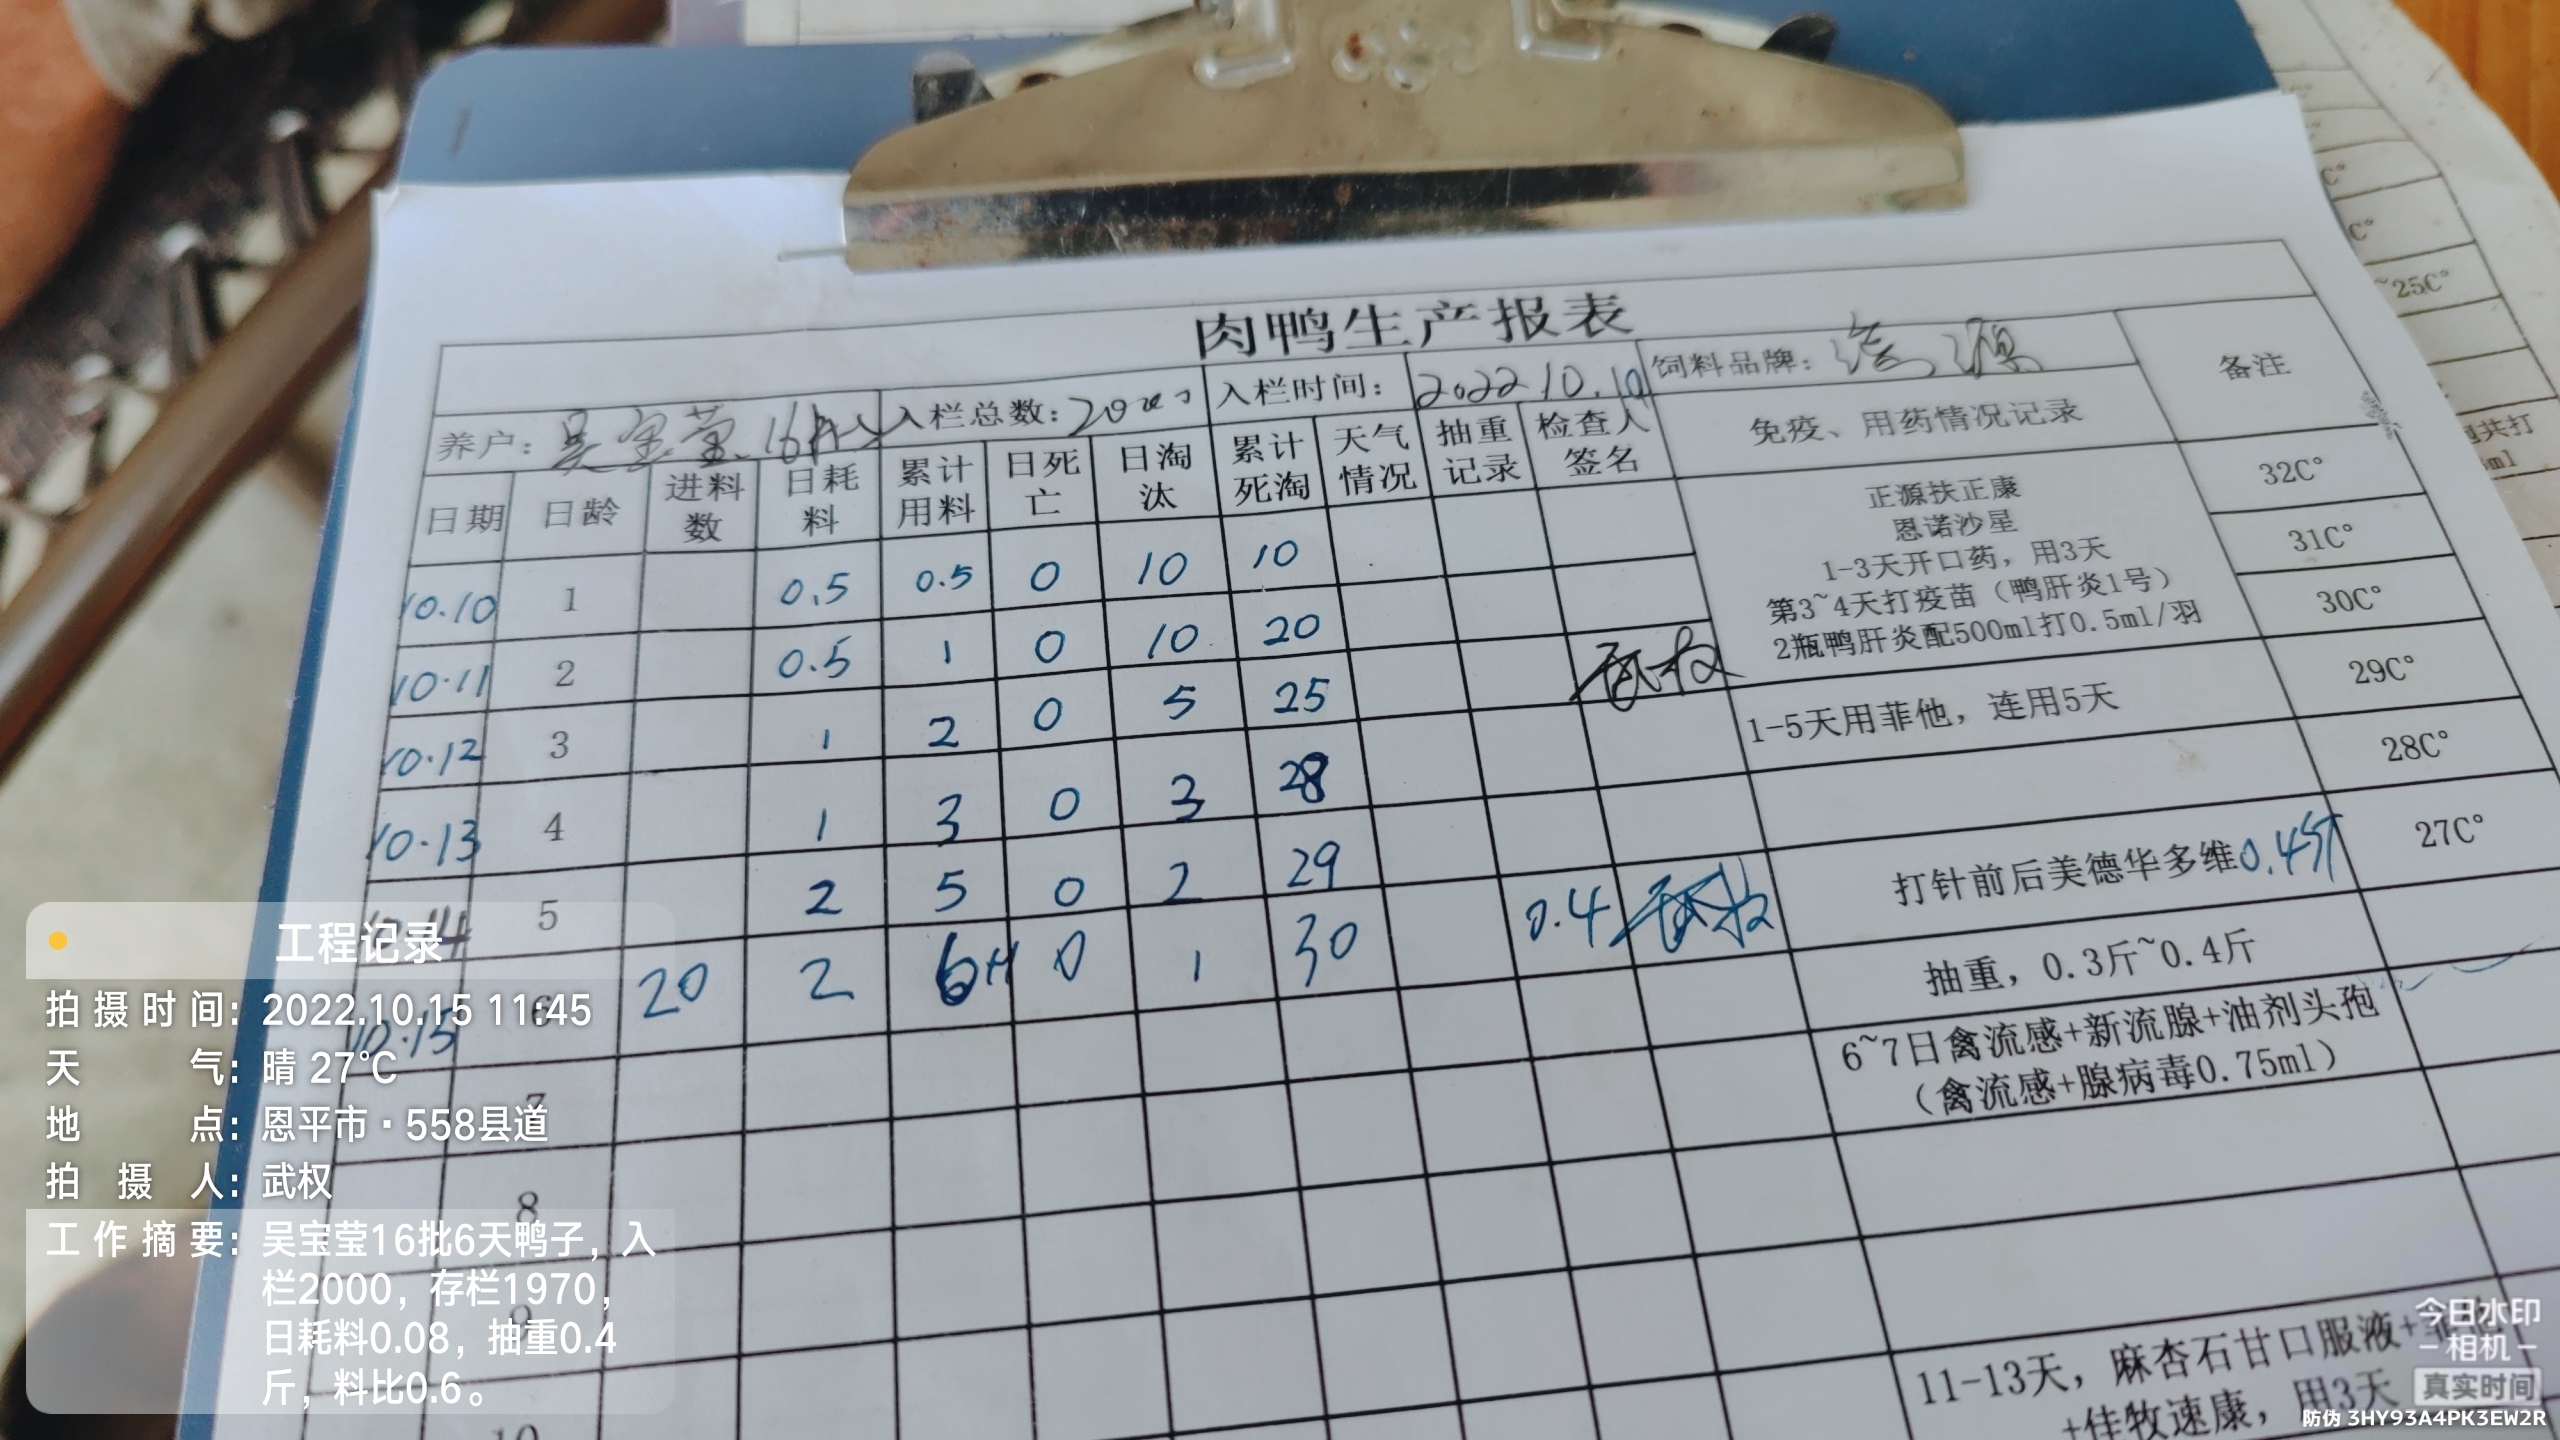 肉鸭生产报表
养户：吴宝莹16批 入栏总数：2000 入栏时间： 2022.10.10 饲料品牌： 备注
日期 日龄 进料数 日耗料 累计用料 日死亡 日淘汰 累计死淘 天气情况 抽重记录 检查人签名 免疫、用药情况记录
10.10 1 0.5 0.5 0 10 10 32C°
10.11 2 0.5 1 0 10 20 31C°
10.12 3 1 2 0 5 25 武权 30C°
正源扶正康
恩诺沙星
1-3天开口药，用3天
第3~4天打疫苗（鸭肝炎1号）
2瓶鸭肝炎配500ml打0.5ml/羽
10.13 4 1 3 0 3 28 1-5天用菲他，连用5天 29C°
10.14 5 2 5 0 2 29 28C°
10.15 6 20 2 6 0 1 30 0.4 武权 打针前后美德华多维0.4斤 27C°
7 抽重，0.3斤~0.4斤
6~7日禽流感+新流腺+油剂头孢
（禽流感+腺病毒0.75ml）
8
9
10
11-13天，麻杏石甘口服液+
+佳牧速康，用3天
~25C°
C°
C°
共打
ml
工程记录
拍摄时间：2022.10.15 11:45
天气：晴 27°C
地点：恩平市·558县道
拍摄人：武权
工作摘要：吴宝莹16批6天鸭子，入
栏2000，存栏1970，
日耗料0.08，抽重0.4
斤，料比0.6。
今日水印
相机
真实时间
防伪 3HY93A4PK3EW2R